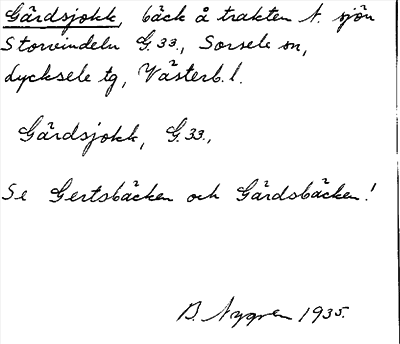 Gårdsjokk, bäck å trakten N. sjön
Storvindeln G.33., Sorsele sn,
Lycksele tg, Västerb.l.
Gårdsjokk, G.33.,
Se Gertsbäcken och Gårdsbäcken!
B. Nygren 1935.